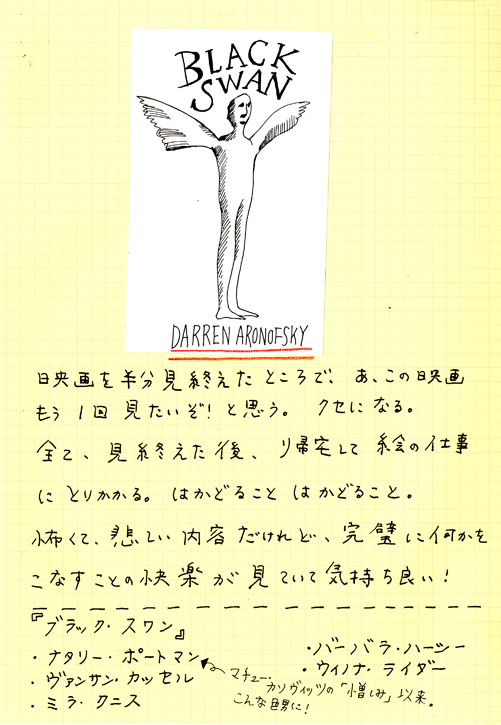 BLACK
SWAN
DARREN ARONOFSKY
映画を半分見終えたところで、あ、この映画
もう1回見たいぞ!と思う。クセになる。
全て、見終えた後、帰宅して絵の仕事
にとりかかる。はかどること はかどること。
怖くて、悲しい内容だけれど、完璧に何かを
こなすことの快楽が見ていて気持ち良い!
『ブラック・スワン』
・ナタリー・ポートマン
・ヴァンサン・カッセル
・ミラ・クニス
・バーバラ・ハーシー
・ウィノナ・ライダー
マチュー・
カソヴィッツの「憎しみ」以来。
こんな色男に!